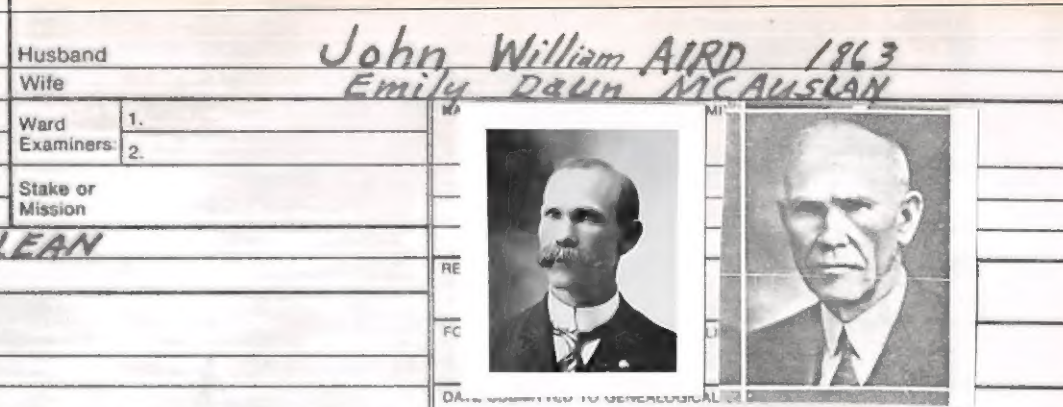 Husband John William AIRD 1863
Wife Emily Daun MCAUSLAN
Ward
Examiners: 1.
2.
Stake or
Mission
LEAN
RE
FO
TO GENEALOGICAL